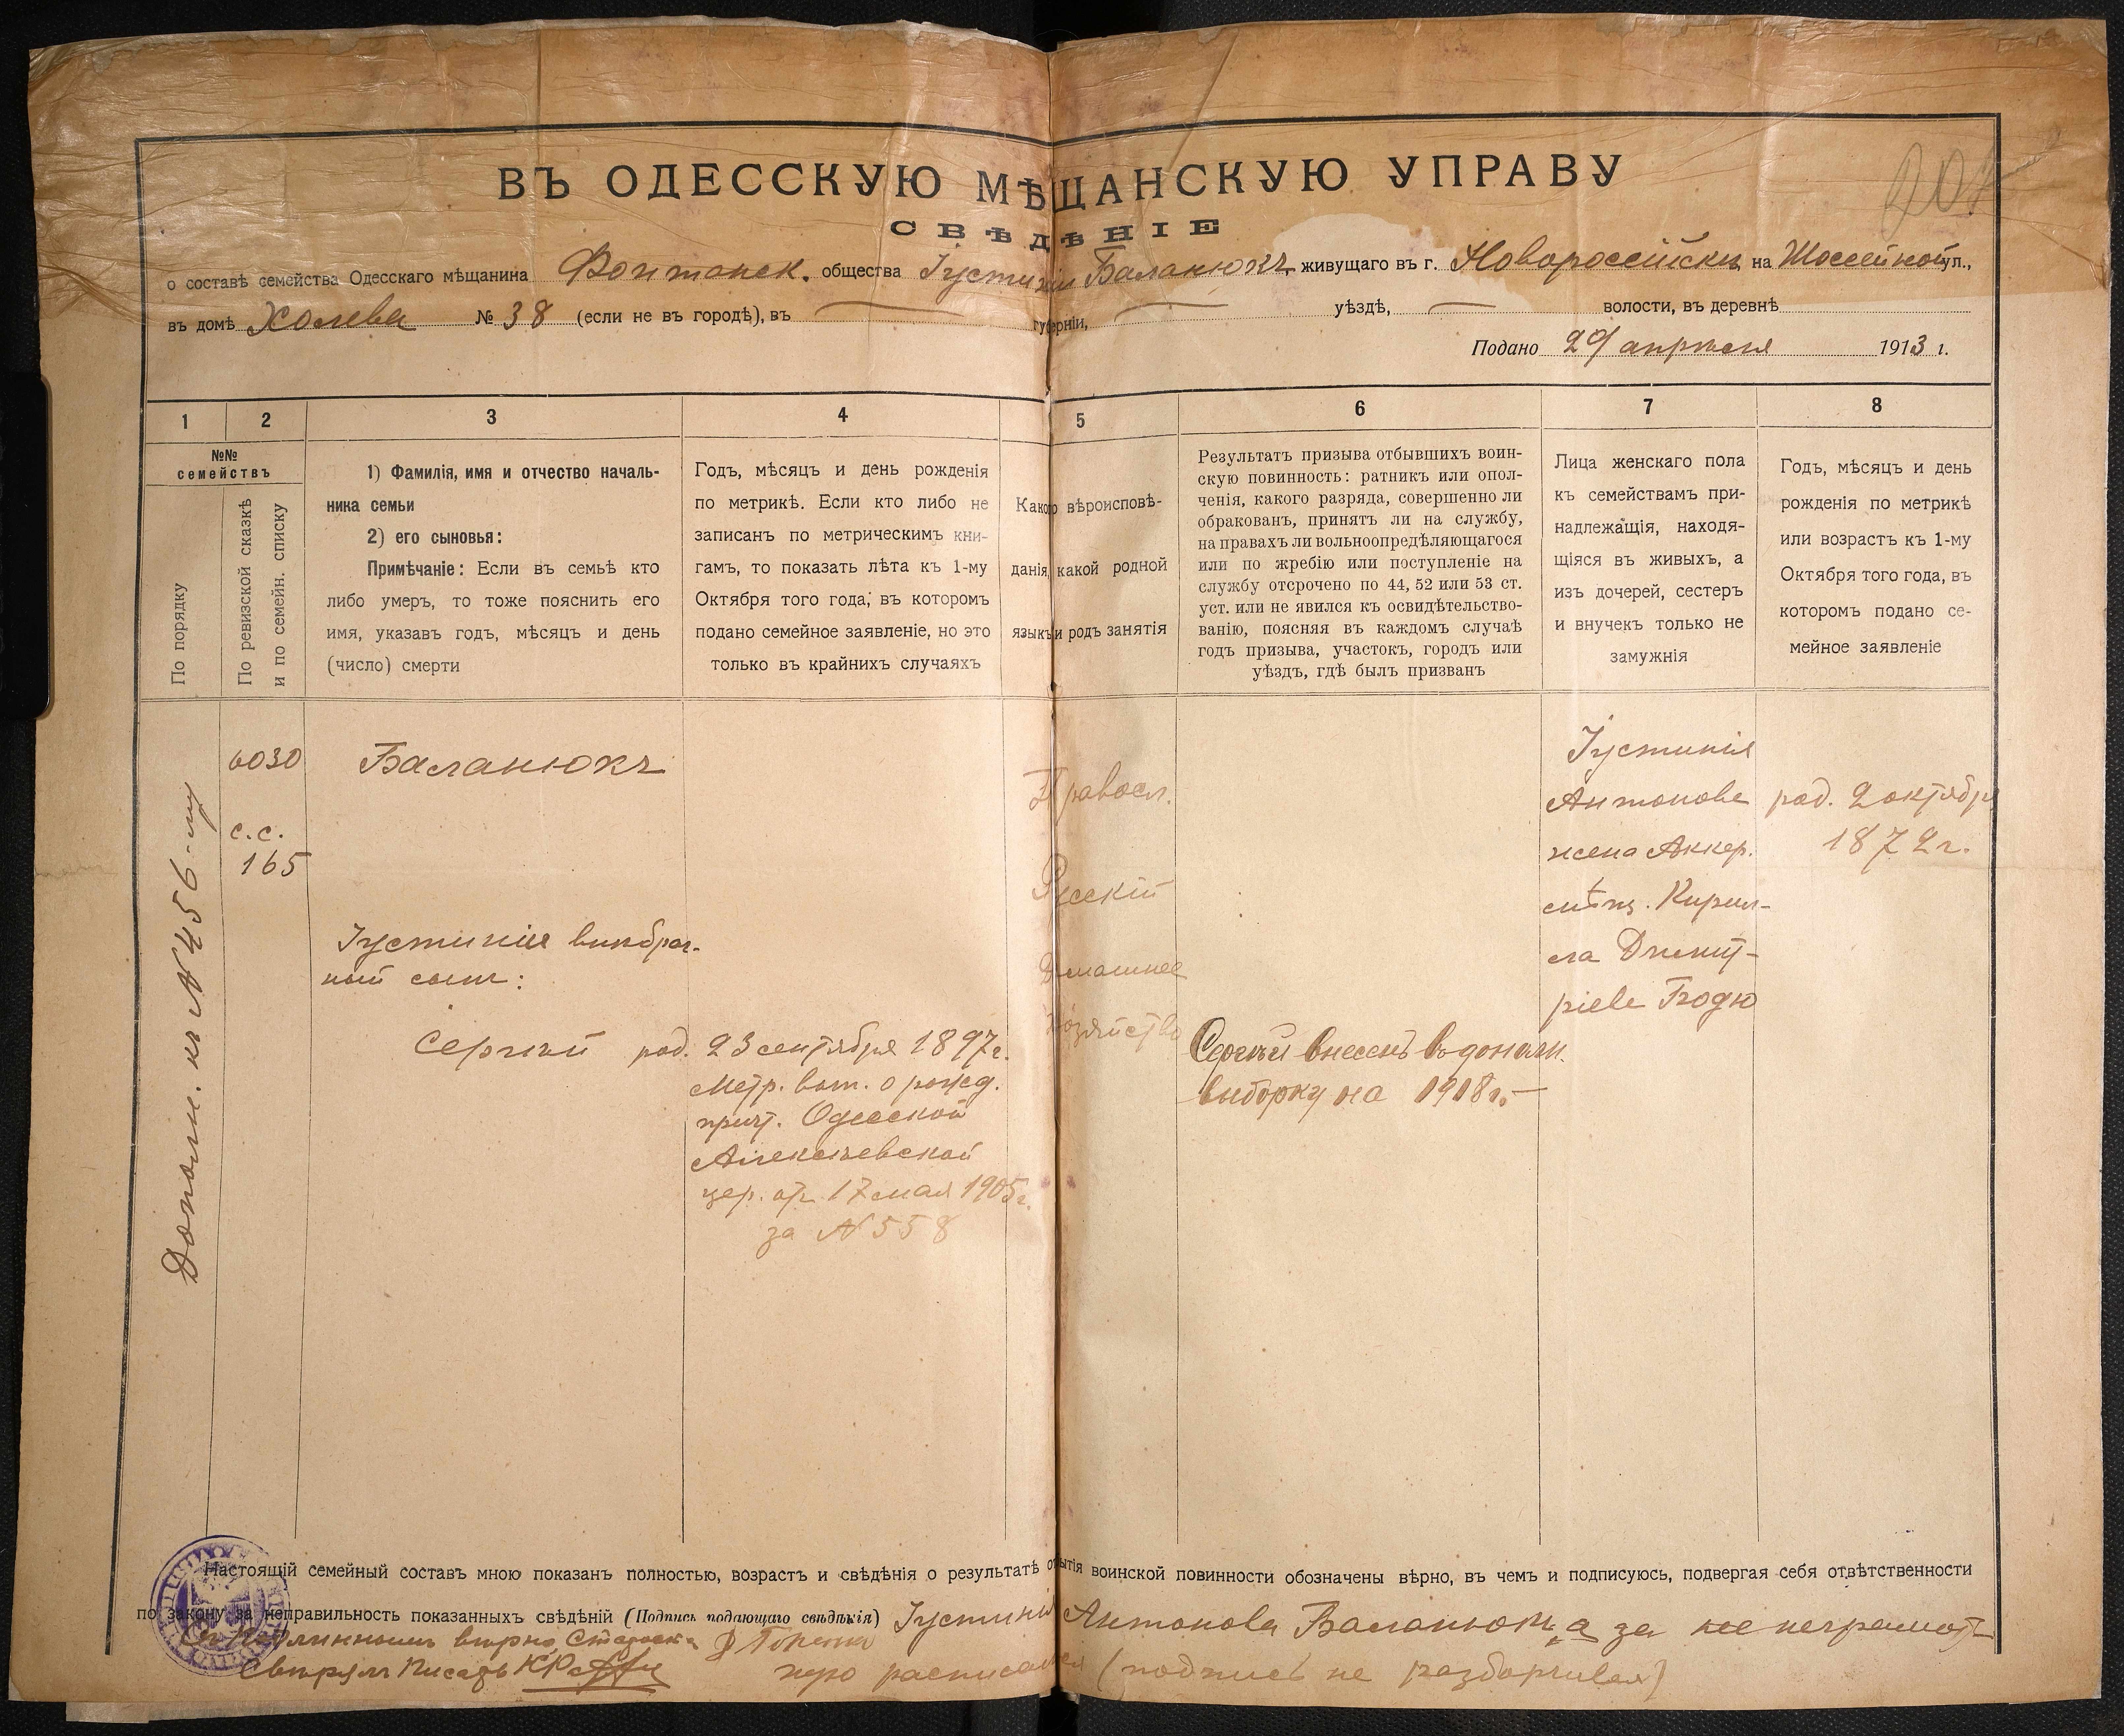 ВЪ ОДЕССКУЮ МѢЩАНСКУЮ УПРАВУ
СВѢДѢНІЕ
о составѣ семейства Одесскаго мѣщанина Фонтанск. общества Іустиніи Баланюкъ живущаго въ г. Новороссійскѣ на Шоссейной ул.,
въ домѣ Холева № 38 (если не въ городѣ), въ губерніи, уѣздѣ, волости, въ деревнѣ
Подано 29 апрѣля 1913 г.
1 2 3 4 5 6 7 8
№№ семействъ
По порядку
По ревизской сказкѣ
и по семейн. списку
1) Фамилія, имя и отчество началь-
ника семьи
2) его сыновья:
Примѣчаніе: Если въ семьѣ кто
либо умеръ, то тоже пояснить его
имя, указавъ годъ, мѣсяцъ и день
(число) смерти
Годъ, мѣсяцъ и день рожденія
по метрикѣ. Если кто либо не
записанъ по метрическимъ кни-
гамъ, то показать лѣта къ 1-му
Октября того года, въ которомъ
подано семейное заявленіе, но это
только въ крайнихъ случаяхъ
Какого вѣроисповѣ-
данія, какой родной
языкъ и родъ занятія
Результатъ призыва отбывшихъ воин-
скую повинность: ратникъ или опол-
ченія, какого разряда, совершенно ли
обракованъ, принятъ ли на службу,
на правахъ ли вольноопредѣляющагося
или по жребію или поступленіе на
службу отсрочено по 44, 52 или 53 ст.
уст. или не явился къ освидѣтельство-
ванію, поясняя въ каждомъ случаѣ
годъ призыва, участокъ, городъ или
уѣздъ, гдѣ былъ призванъ
Лица женскаго пола
къ семействамъ при-
надлежащія, находя-
щіяся въ живыхъ, а
изъ дочерей, сестеръ
и внучекъ только не
замужнія
Годъ, мѣсяцъ и день
рожденія по метрикѣ
или возрастъ къ 1-му
Октября того года, въ
которомъ подано се-
мейное заявленіе
Дополн. къ № 456-му
6030
с.с.
165
Баланюкъ
Іустиніи внѣбрач-
ный сынъ:
Сергѣй род. 23 сентября 1897 г.
Метр. вып. о рожд.
причт. Одесской
Алексѣевской
цер. отъ 17 мая 1905 г.
за № 558
Правосл.
Русскій
Домашнее
хозяйство
Сергѣй внесенъ въ дополн.
выборку на 1918 г.
Іустинія
Антонова
жена Аккер.
мѣщ. Кирил-
ла Дмит-
ріева
род. 2 октября
1872 г.
Настоящій семейный составъ мною показанъ полностью, возрастъ и свѣдѣнія о результатѣ отбытія воинской повинности обозначены вѣрно, въ чемъ и подписуюсь, подвергая себя отвѣтственности
по закону за неправильность показанныхъ свѣдѣній (Подпись подающаго свѣдѣнія) Іустинія Антонова Баланюкъ, а за нее неграмот-
ную расписался (подпись не разборчивая)
Съ подлиннымъ вѣрно, Староста
Свѣрялъ Писарь